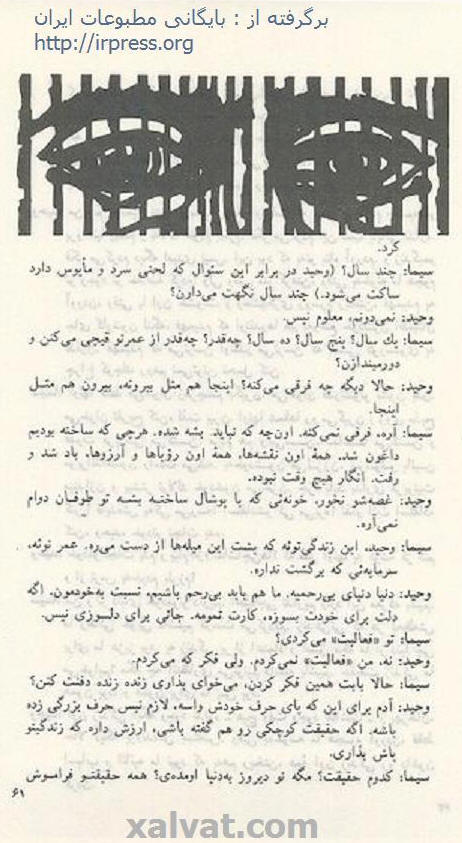 برگرفته از : بایگانی مطبوعات ایران
http://irpress.org
کرد.
سیما: چند سال؟ (وحید در برابر این سئوال که لحنی سرد و مأیوس دارد
ساکت می‌شود.) چند سال نگهت می‌دارن؟
وحید: نمی‌دونم، معلوم نیس.
سیما: یك سال؟ پنج سال؟ ده سال؟ چه‌قدر؟ چه‌قدر از عمرتو قیچی می‌کنن و
دورمیندازن؟
وحید: حالا دیگه چه فرقی می‌کنه؟ اینجا هم مثل بیرونه، بیرون هم مثـل
اینجا.
سیما: آره، فرقی نمی‌کنه. اون‌چه که نباید بشه شده. هرچی که ساخته بودیم
داغون شد. همهٔ اون نقشه‌ها، همهٔ اون رؤیاها و آرزوها، باد شد و
رفت. انگار هیچ وقت نبوده.
وحید: غصه‌شو نخور. خونه‌ئی که با پوشال ساختـه بشـه تو طوفـان دوام
نمی‌آره.
سیما: وحید، این زندگی‌توئه که پشت این میله‌ها از دست می‌ره. عمر توئه،
سرمایه‌ئی که برگشت نداره.
وحید: دنیا دنیای بی‌رحمیه. ما هم باید بی‌رحم باشیم، نسبت به‌خودمون. اگه
دلت برای خودت بسوزه، کارت تمومه. جائی برای دلسوزی نیس.
سیما: تو «فعالیت» می‌کردی؟
وحید: نه. من «فعالیت» نمی‌کردم. ولی فکر که می‌کردم.
سیما: حالا بابت همین فکر کردن، می‌خوای بذاری زنده زنده دفنت کنن؟
وحید: آدم برای این که پای حرف خودش واسه، لازم نیس حرف بزرگی زده
باشه. اگه حقیقت کوچکی رو هم گفته باشی، ارزش داره که زندگیتو
باش بذاری.
سیما: کدوم حقیقت؟ مگه تو دیروز به‌دنیا اومده‌ی؟ همه حقیقتـو فرامـوش
۶۱
xalvat.com